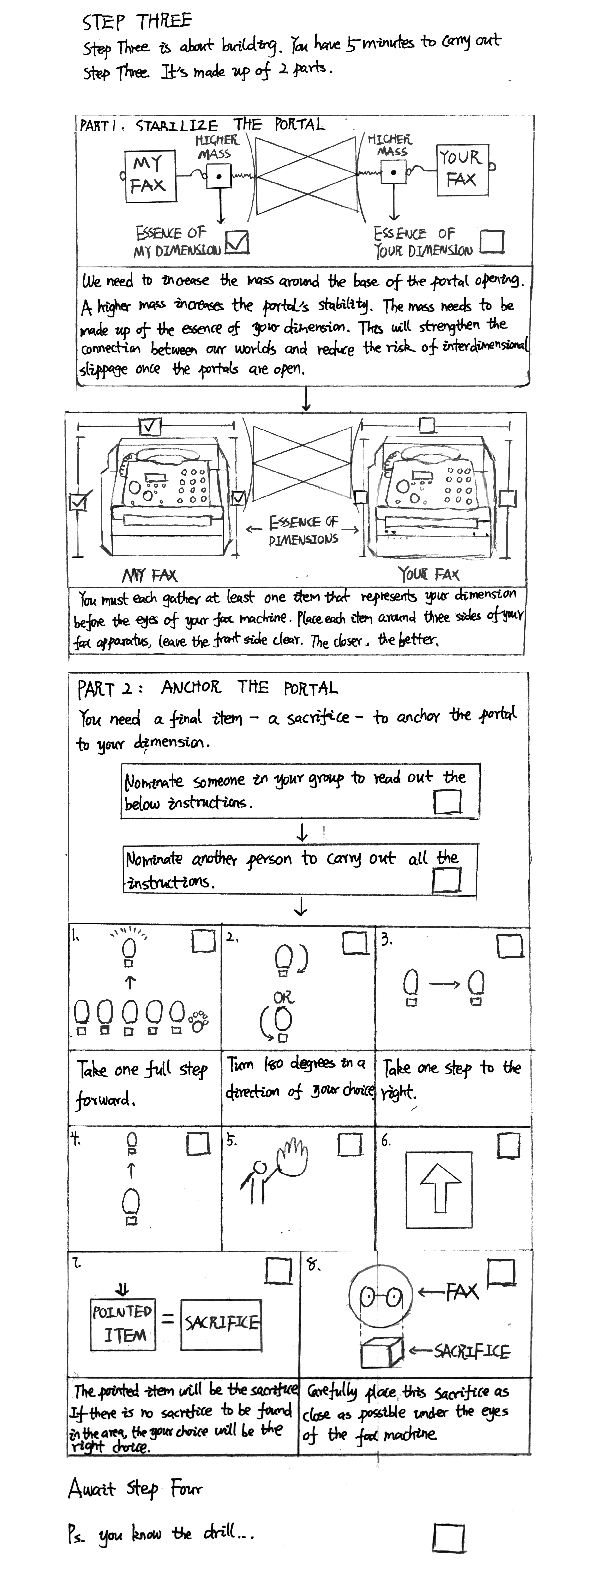 STEP THREE
Step Three is about building. You have 5 minutes to carry out
Step Three. It's made up of 2 parts.
PART 1. STABILIZE THE PORTAL
HIGHER
MASS
HIGHER
MASS
MY
FAX
YOUR
FAX
ESSENCE OF
MY DIMENSION
ESSENCE OF
YOUR DIMENSION
We need to increase the mass around the base of the portal opening.
A higher mass increases the portal's stability. The mass needs to be
made up of the essence of your dimension. This will strengthen the
connection between our worlds and reduce the risk of interdimensional
slippage once the portals are open.
← ESSENCE OF →
DIMENSIONS
MY FAX
YOUR FAX
You must each gather at least one item that represents your dimension
before the eyes of your fax machine. Place each item around three sides of your
fax apparatus, leave the front side clear. The closer, the better.
PART 2: ANCHOR THE PORTAL
You need a final item - a sacrifice - to anchor the portal
to your dimension.
Nominate someone in your group to read out the
below instructions.
Nominate another person to carry out all the
instructions.
1.
Take one full step
forward.
2.
OR
Turn 180 degrees in a
direction of your choice
3.
Take one step to the
right.
4.
5.
6.
7.
POINTED
ITEM
=
SACRIFICE
The pointed item will be the sacrifice
If there is no sacrifice to be found
in the area, the your choice will be the
right choice.
8.
← FAX
← SACRIFICE
Carefully place this sacrifice as
close as possible under the eyes
of the fax machine
Await Step Four
Ps. you know the drill...